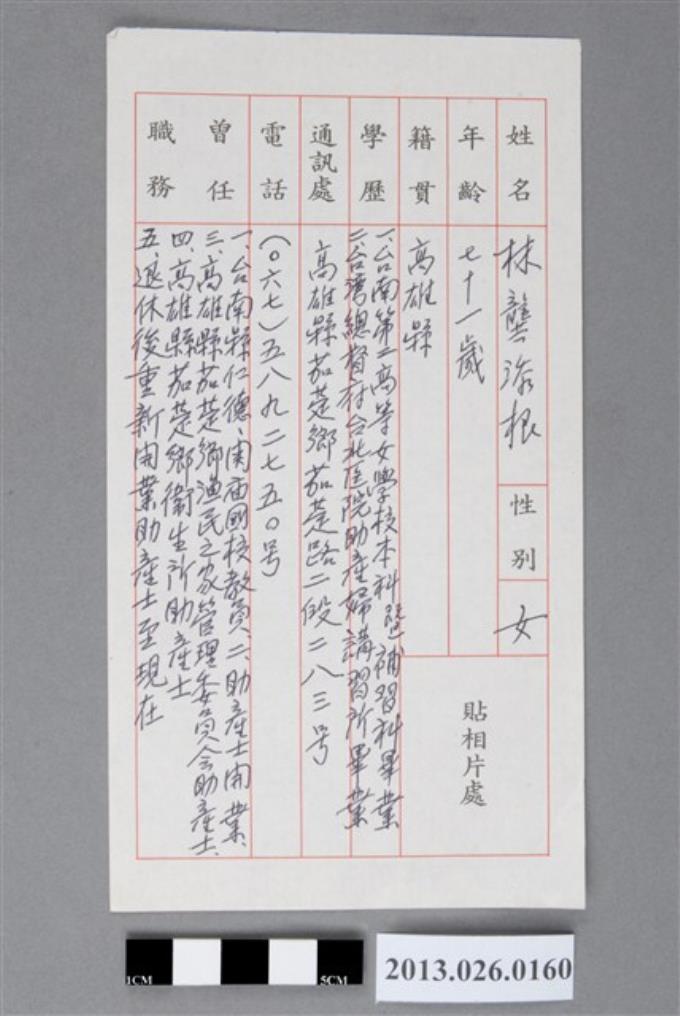 姓名 林龔添根 性別 女
年齡 七十一歲
籍貫 高雄縣
貼相片處
學歷 一、台南第二高等女學校本科暨補習科畢業
二、台灣總督府台北医院助產婦講習所畢業
通訊處 高雄縣茄萣鄉茄萣路二段二八三号
電話 (〇六七)五八九二七五〇号
曾任職務 一、台南縣仁德、関庙國校教員、二、助產士開業、
三、高雄縣茄萣鄉漁民之家管理委員会助產士、
四、高雄縣茄萣鄉衛生所助產士
五、退休後重新開業助產士至現在
1CM 5CM
2013.026.0160